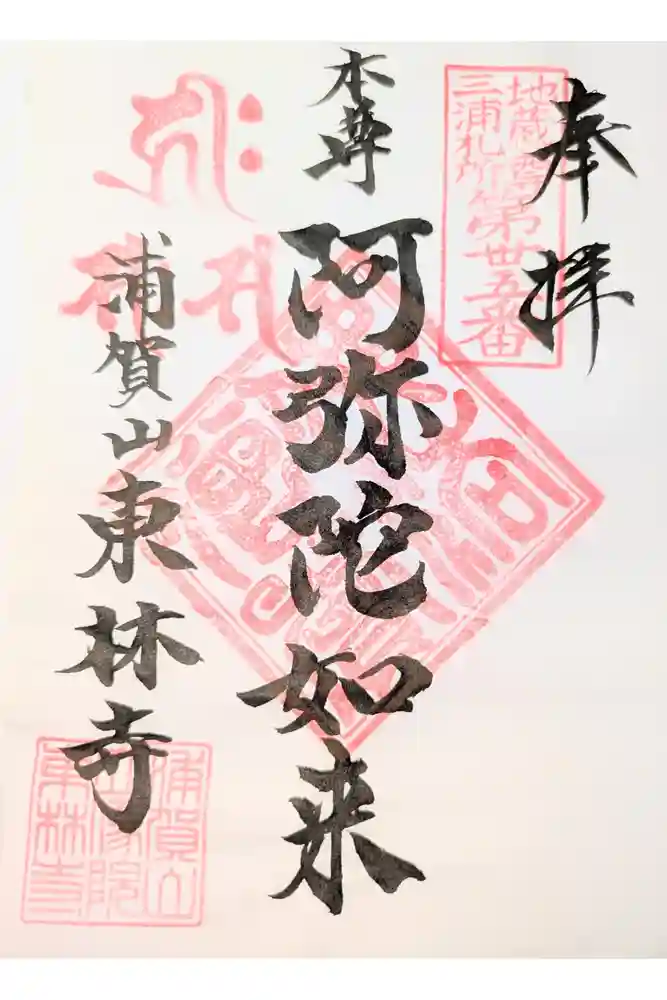 奉拝
地蔵尊
三浦札所第廿五番
本尊
阿弥陀如来
浦賀山東林寺
浦賀山
東林寺